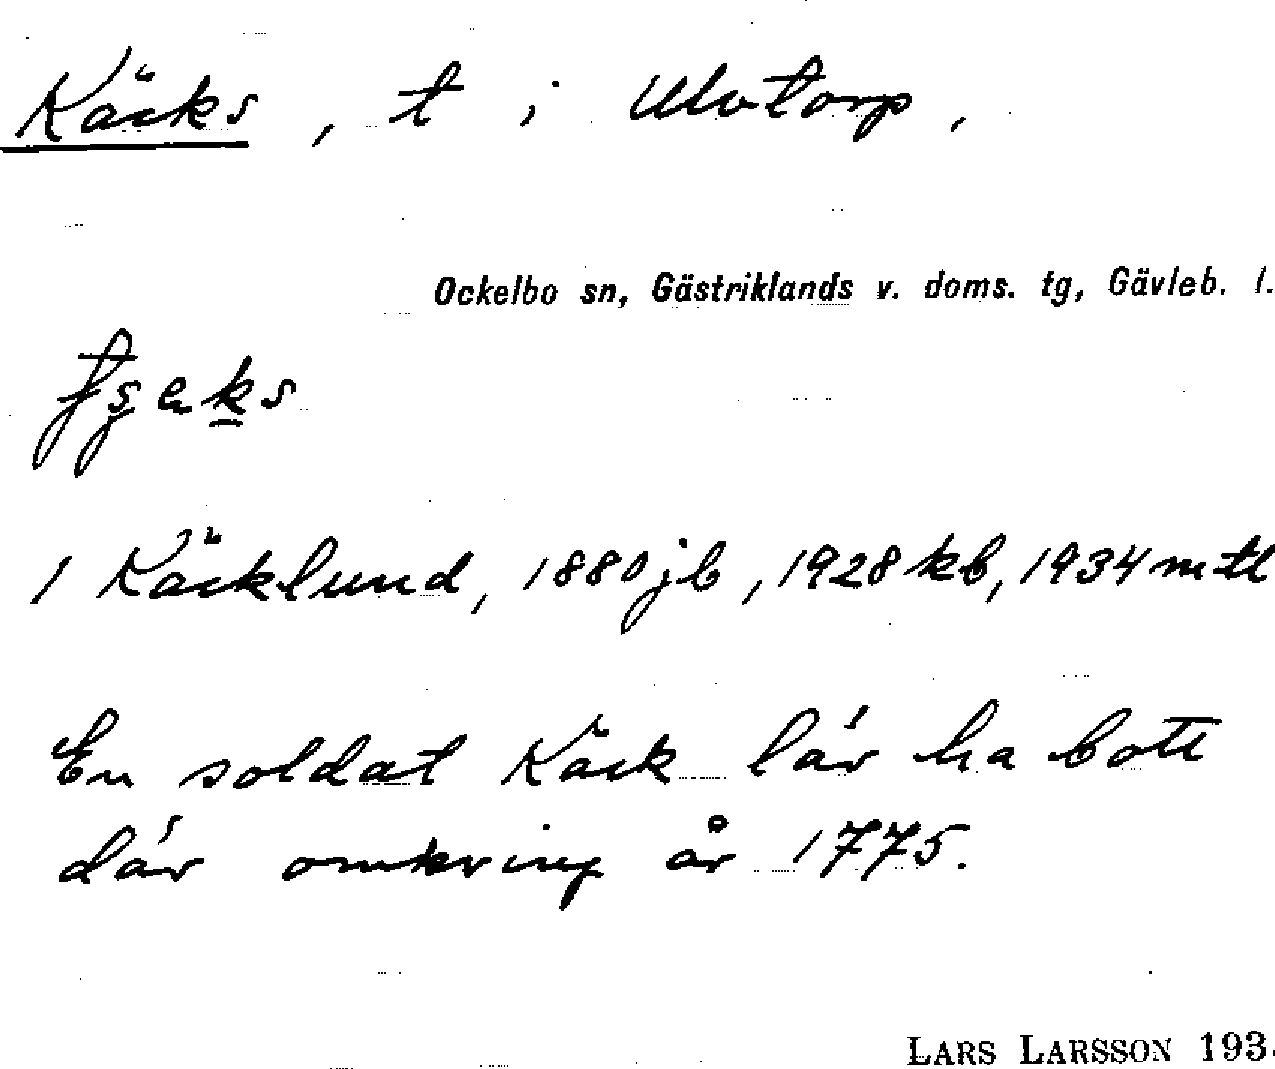 Käcks, t i Ulvtorp,
Ockelbo sn, Gästriklands v. doms. tg, Gävleb. l.
1 Käcklund, 1880 jb, 1928 kb, 1934 mtl
En soldat Käck lär ha bott
där omkring år 1775.
LARS LARSSON 193